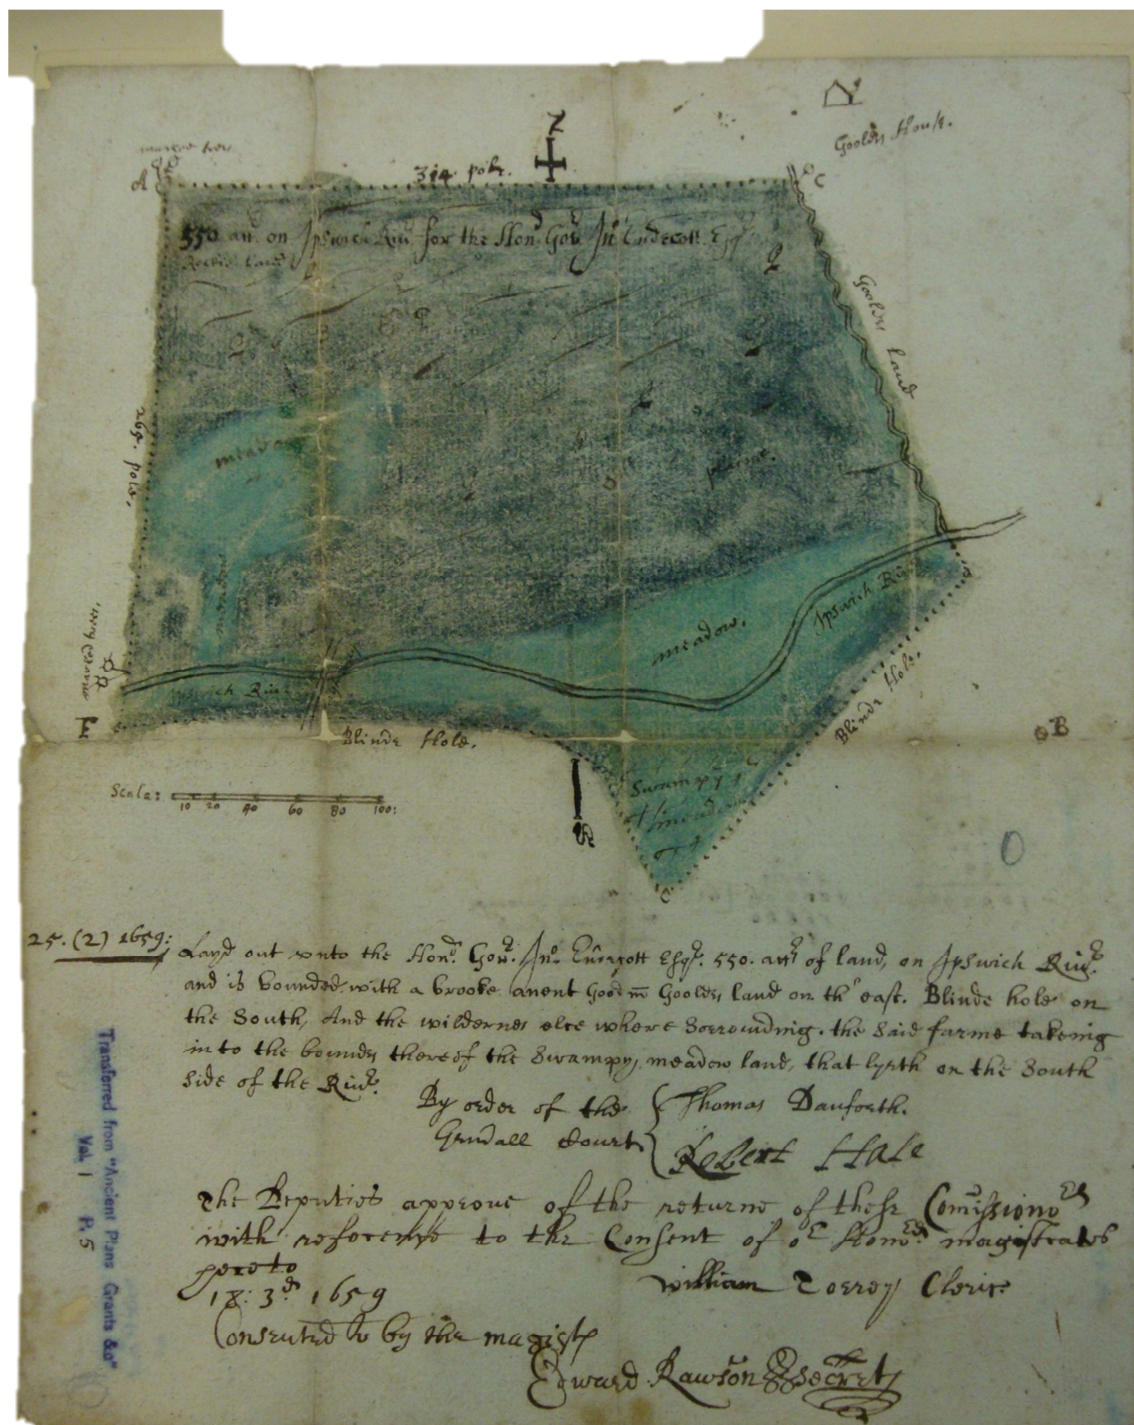 N
Goolds House.
marked tree
A
314 pole.
C
550 ac. on Ipswich Riv. for the Hon. Gov. Jno Endecott Esqr
Rockie Land
Goolds Land
265. pole.
meadow
plaine.
meadow
meadow.
Ipswich River
Ipswich River
F
Blinde Hole.
Blinde Hole.
B
Swampy
meadow
S
Scale:
10 20 40 60 80 100:
25. (2) 1659:
Layd out vnto the Hond. Gour. Jno. Endecott Esqr. 550. acrs of land, on Ipswich Riur.
and is bounded with a brooke anent Good m̅ Goolds land on th east. Blinde hole on
the South, And the wildernes elce where Sorrounding. the Said farme takeing
in to the bounds thereof the Swampy meadow land, that lyeth on the South
Side of the Riur.
By order of the
Genrall Court
Thomas Danforth.
Robert Hale
The Deputies approue of the returne of these Comissione rs
with reference to the Consent of or Honord magistrates
hereto
18: 3d: 1659
William Torrey Cleric.
Consented to by the magists
Edward Rawson Secret
Transferred from "Ancient Plans Grants &c"
Vol. 1 P. 5